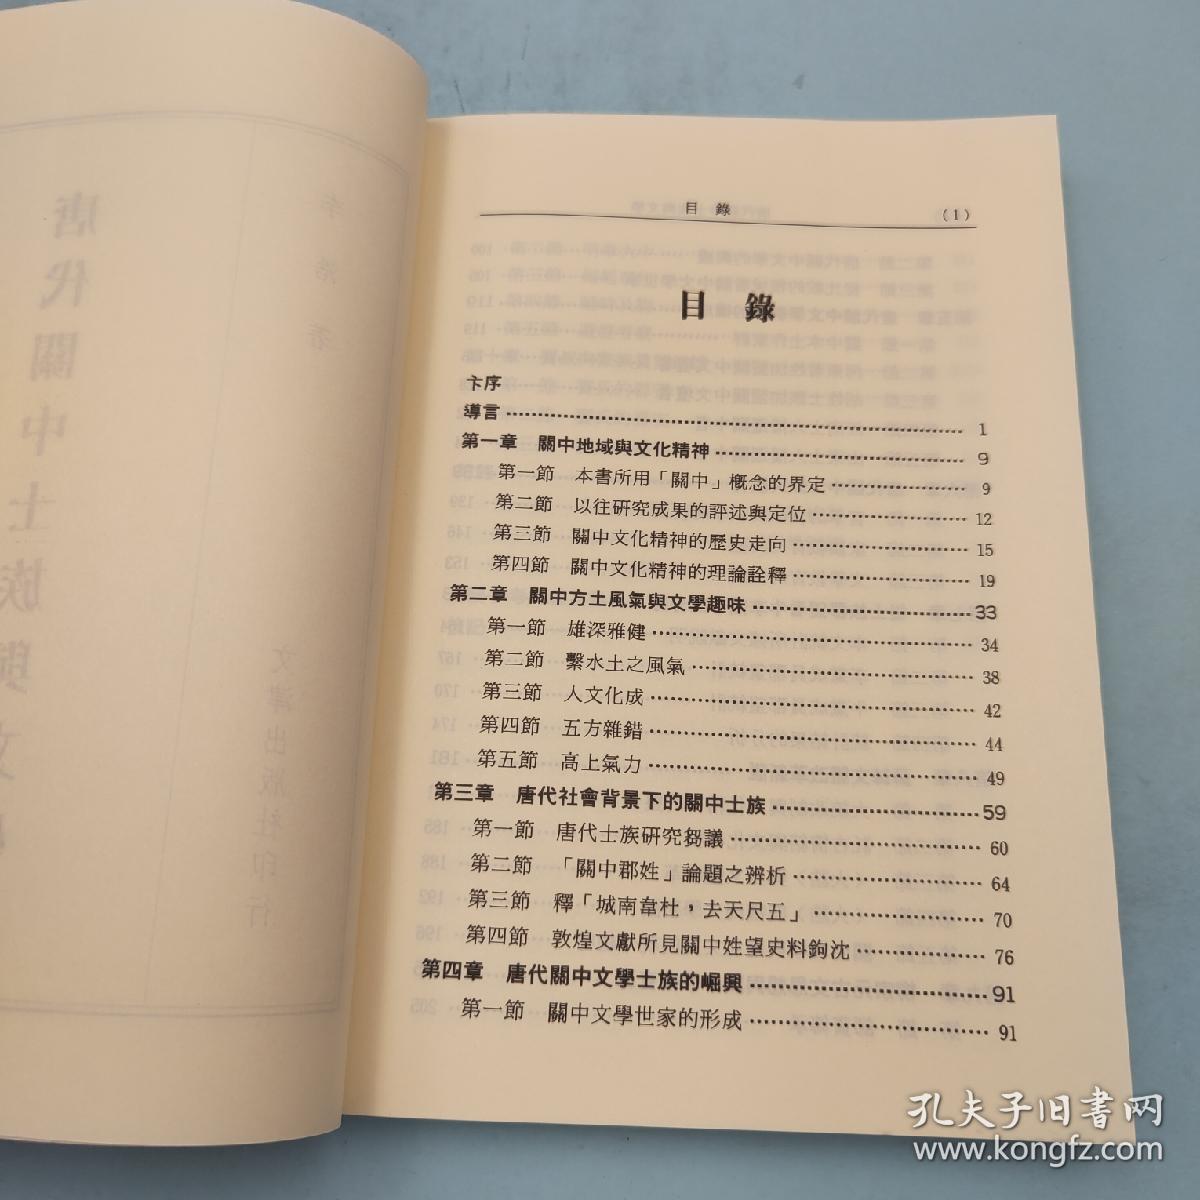 目錄
(1)
目錄
卞序
導言 1
第一章 關中地域與文化精神 9
第一節 本書所用「關中」概念的界定 9
第二節 以往研究成果的評述與定位 12
第三節 關中文化精神的歷史走向 15
第四節 關中文化精神的理論詮釋 19
第二章 關中方土風氣與文學趣味 33
第一節 雄深雅健 34
第二節 繫水土之風氣 38
第三節 人文化成 42
第四節 五方雜錯 44
第五節 高上氣力 49
第三章 唐代社會背景下的關中士族 59
第一節 唐代士族研究芻議 60
第二節 「關中郡姓」論題之辨析 64
第三節 釋「城南韋杜，去天尺五」 70
第四節 敦煌文獻所見關中姓望史料鉤沈 76
第四章 唐代關中文學士族的崛興 91
第一節 關中文學世家的形成 91
唐代關中士族與文
李浩著
文津出版社印行
孔夫子旧书网
www.kongfz.com